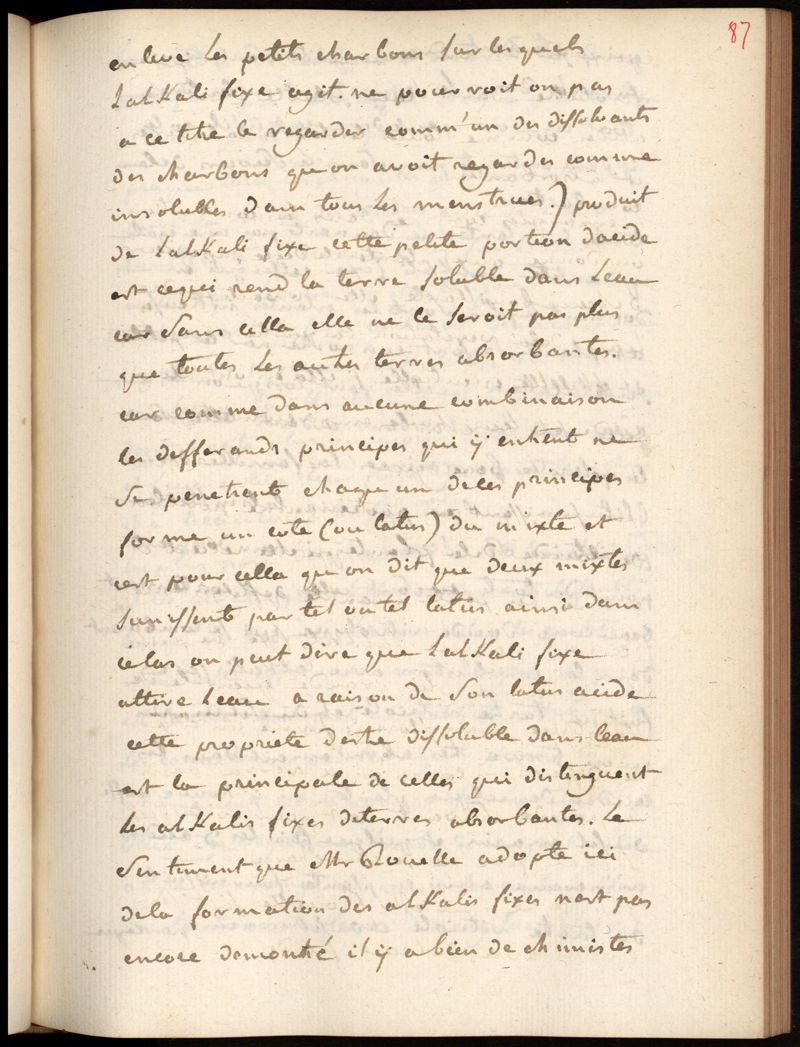 87
enleve les petits charbons sur lesquels
lalKali fixe agit. ne pourroit on pas
a ce titre le regarder comm'un des dissolvants
des charbons que on avoit regardes comme
insolubles dans tous les menstrues.) produit
de lalKali fixe cette petite portion dacide
est cequi rend la terre soluble dans leau
car sans cella elle ne le seroit pas plus
que toutes les autres terres absorbantes.
car comme dans aucune combinaison
les defferands principes qui ÿ entrent ne
se penetrent chaque un deces principes
forme un coté (ou latus) du mixte et
cest pour cella que on dit que deux mixtes
sunissent par tel ou tel latus ainsi dans
celas on peut dire que lalKali fixe
attire leau a raison de son latus acide
cette propriete destre dissoluble dans leau
est la principale de celles qui distinguent
les alKalis fixes deterres absorbantes. Le
sentiment que Mr Rouelle adopte ici
dela formation des alKalis fixes nest pas
encore demontré il ÿ a bien de chimistes